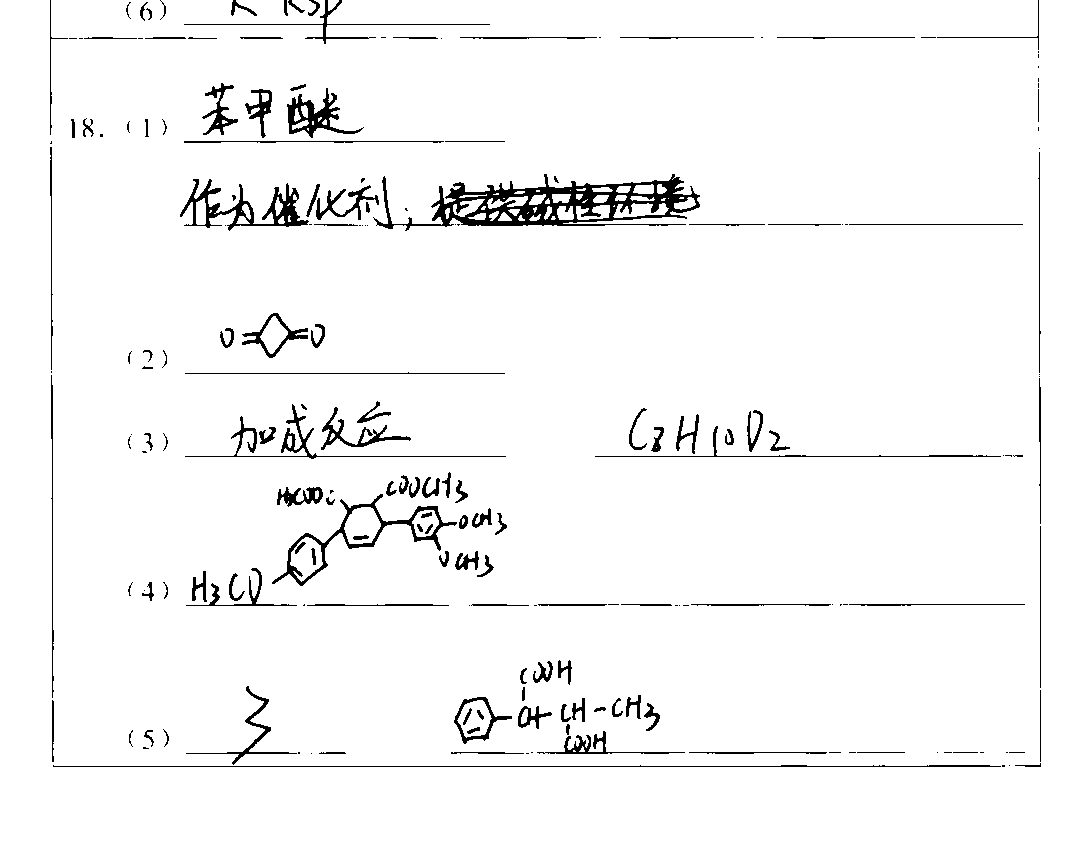 (6) K Ksp
18. (1) 苯甲醚
作为催化剂;
(2) O=◇=O
(3) 加成反应 C8H10O2
H3COOC COOCH3
OCH3
OCH3
(4) H3CO
COOH
(5) 3 CH-CH-CH3
COOH